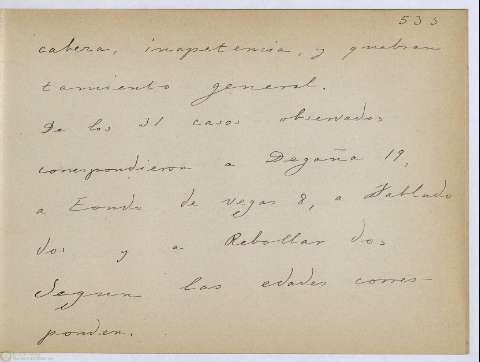 533
cabeza, inapetencia, y quebran
tamiento general.
De los 31 casos observados
correspondieron a Degaña 19,
a Fondo de vegas 8, a Tablado
dos y a Rebollar dos
Segun las edades corres-
ponden.